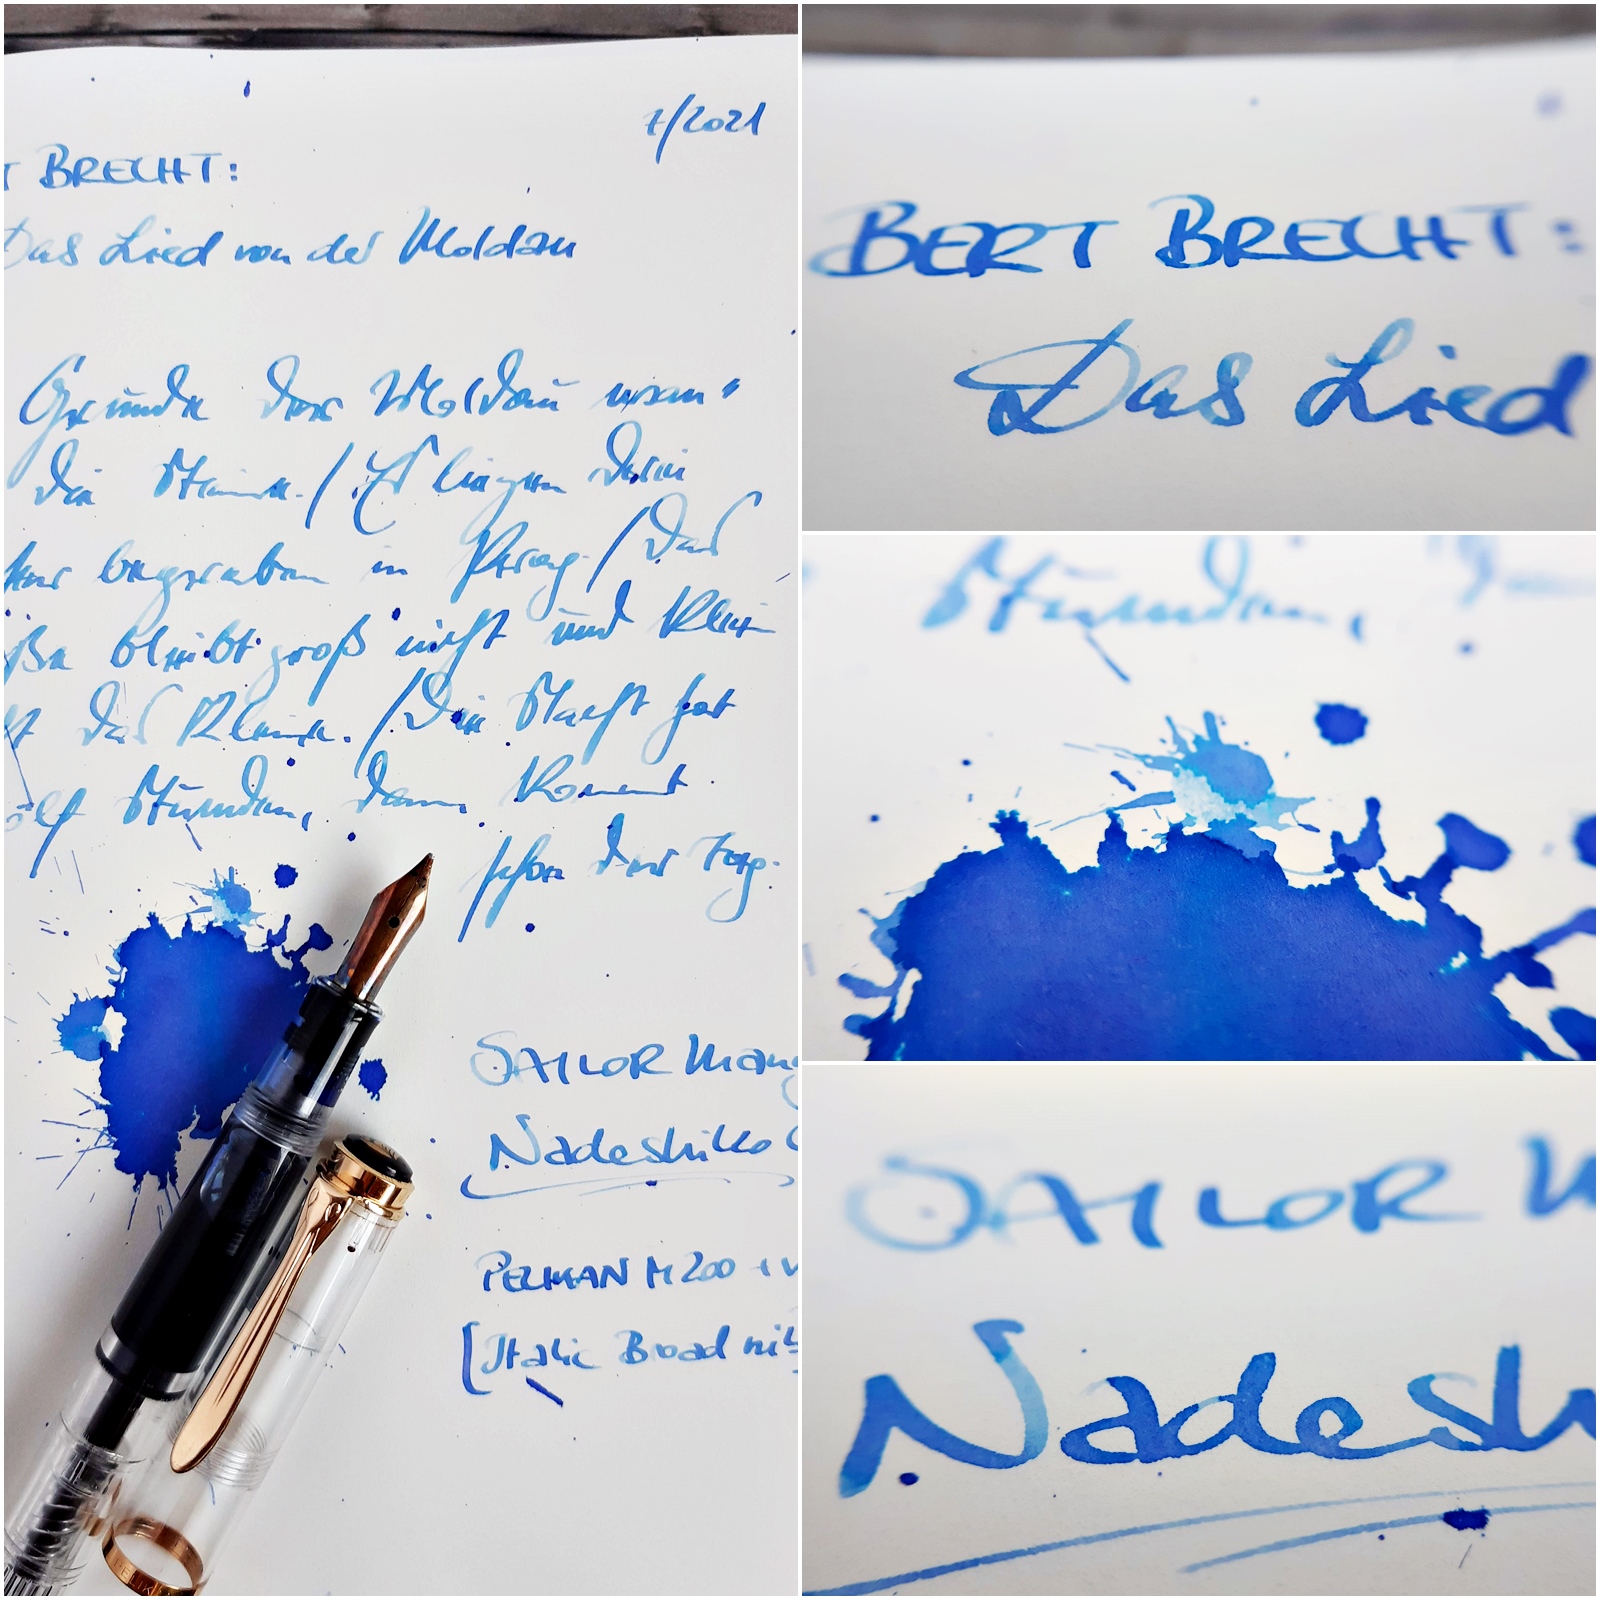 7/2021
T BRECHT:
Das Lied von der Moldau
Grunde der Moldau wan"
die Steine. / Es liegen drei
ser begraben in Prag. / Das
ße bleibt groß nicht und klein
das Kleine. / Die Nacht hat
ölf Stunden, dann kommt
schon der Tag.
SAILOR Many
Nadeshiko
PELIKAN M200
[Italic Broad nib
BERT BRECHT:
Das Lied
Stunden,
SAILOR M
Nadesh